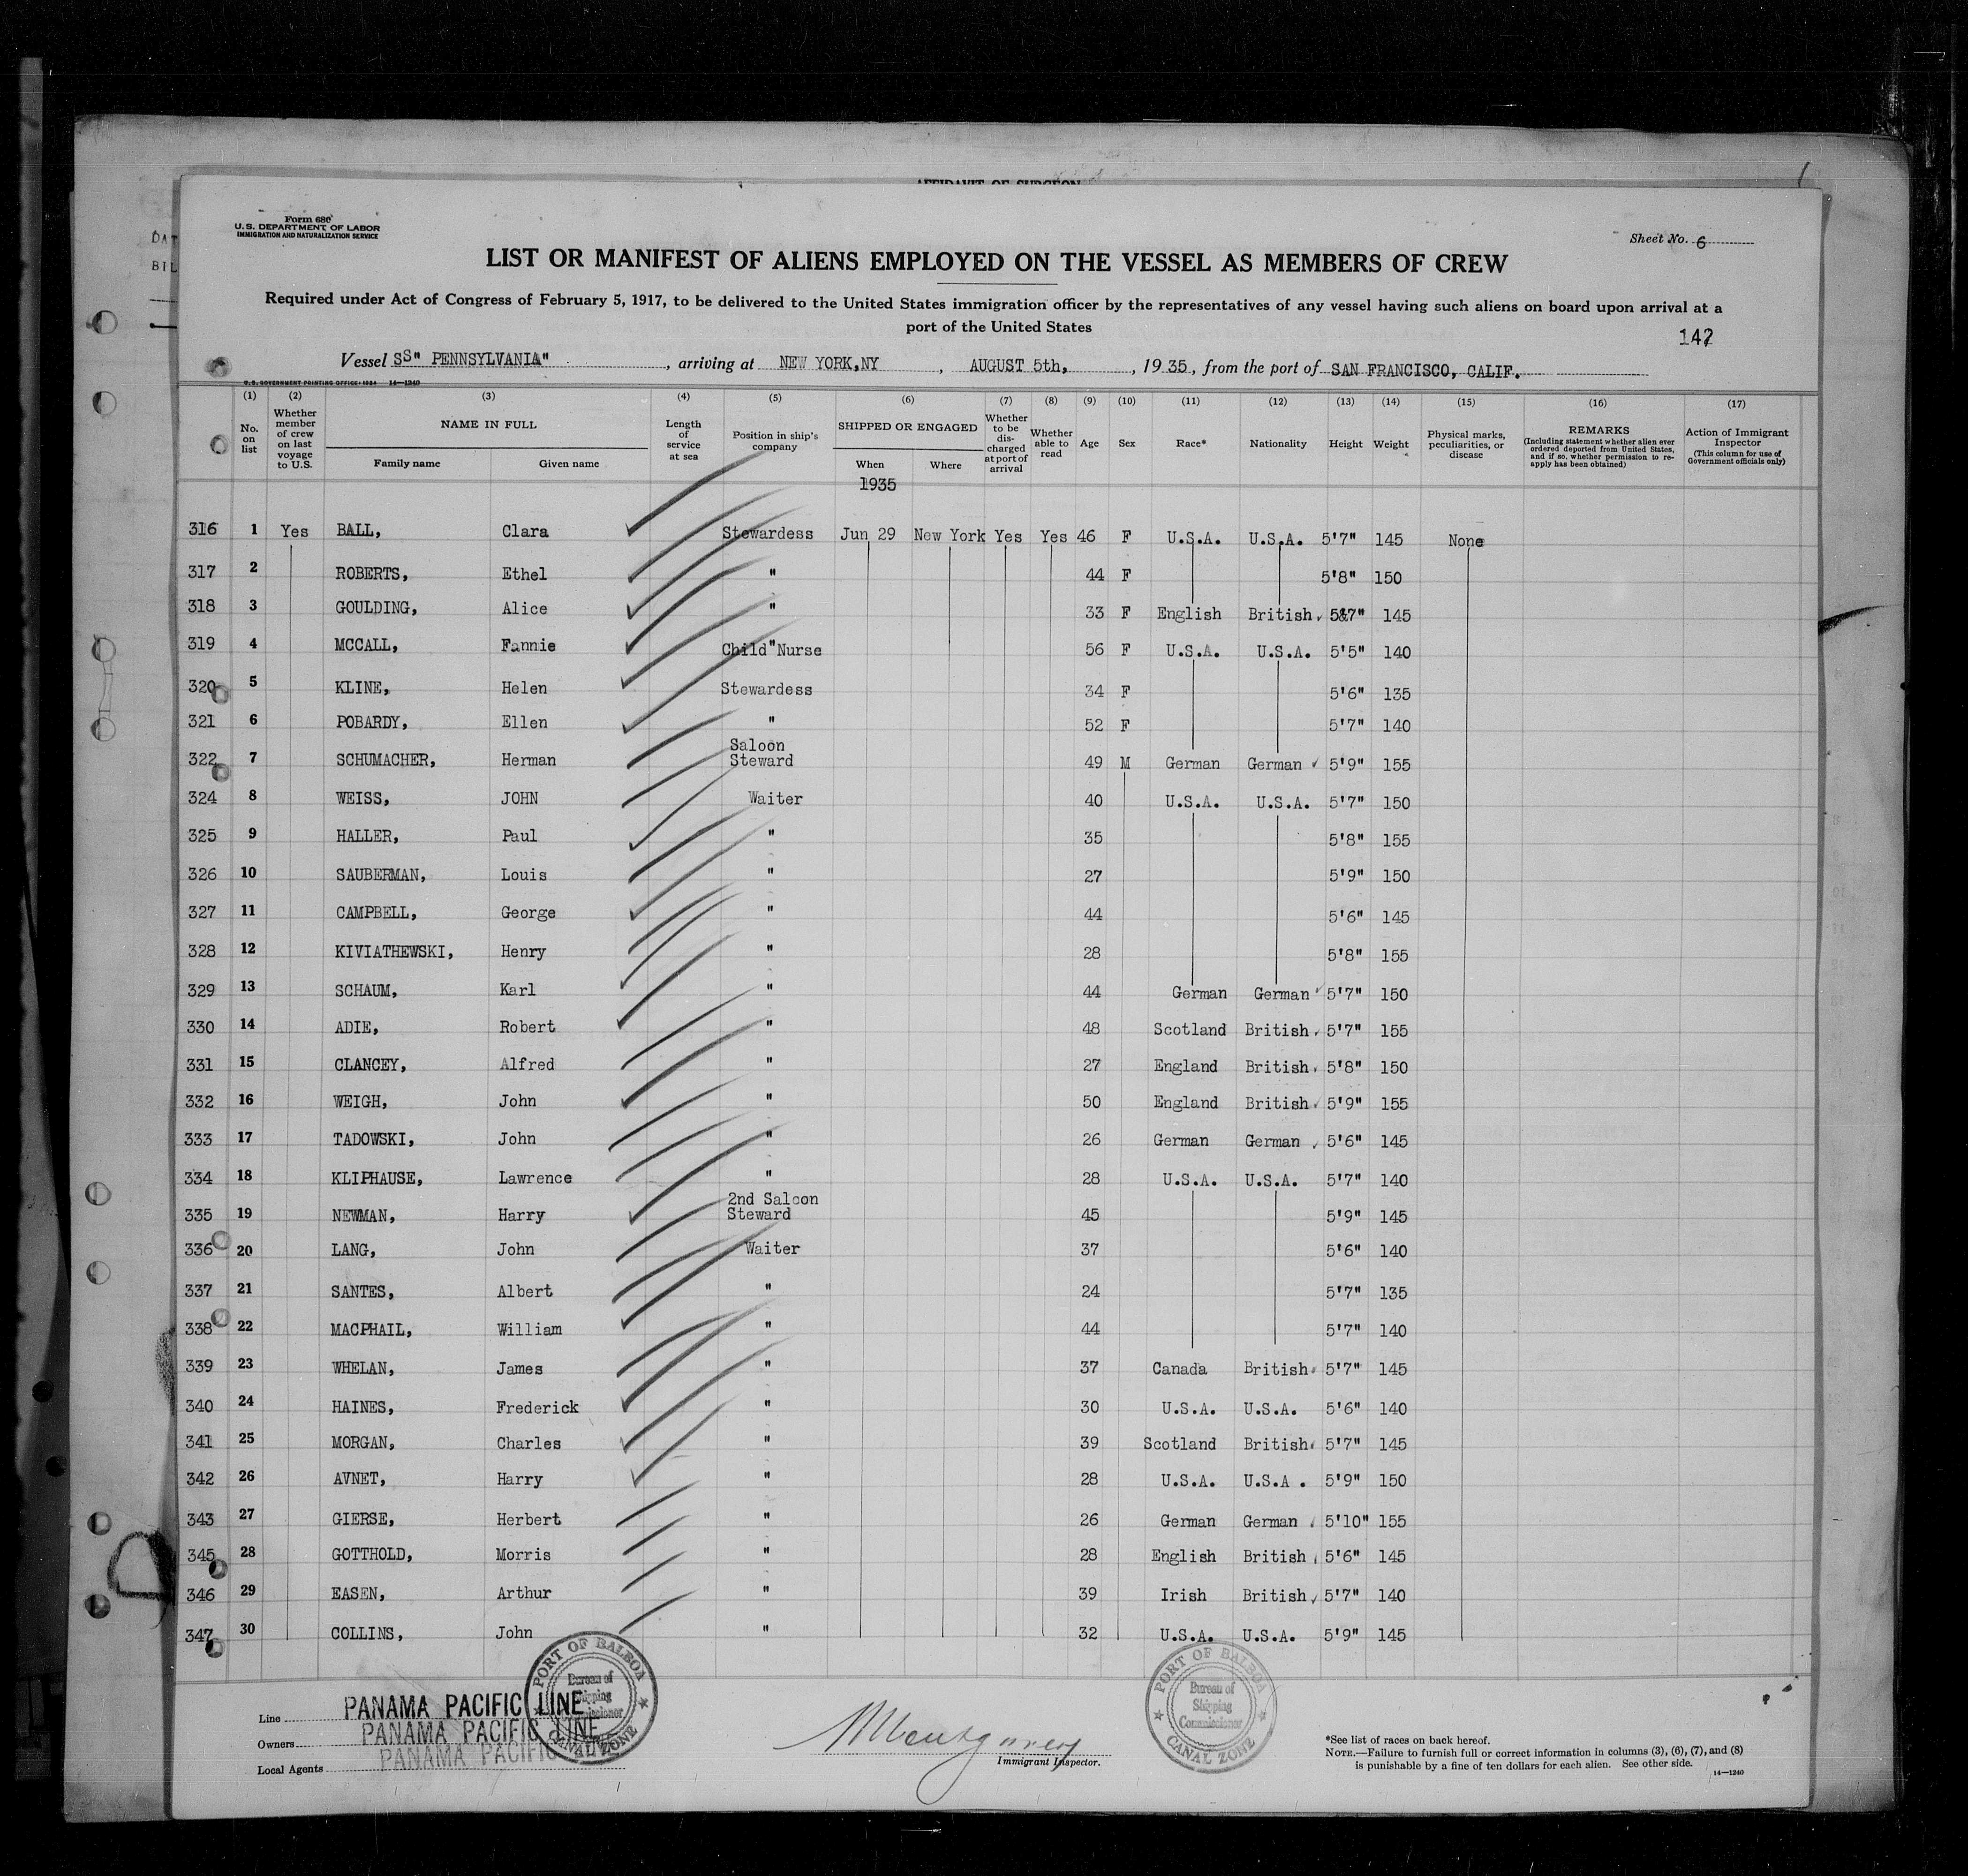 AFFIDAVIT OF SURGEON
Form 680
U.S. DEPARTMENT OF LABOR
IMMIGRATION AND NATURALIZATION SERVICE
Sheet No. 6
DAT
BIL
LIST OR MANIFEST OF ALIENS EMPLOYED ON THE VESSEL AS MEMBERS OF CREW
Required under Act of Congress of February 5, 1917, to be delivered to the United States immigration officer by the representatives of any vessel having such aliens on board upon arrival at a
port of the United States
147
Vessel SS" PENNSYLVANIA" , arriving at NEW YORK,NY , AUGUST 5th, , 1935, from the port of SAN FRANCISCO, CALIF.
U.S. GOVERNMENT PRINTING OFFICE: 1934 14—1240
(1) (2) (3) (4) (5) (6) (7) (8) (9) (10) (11) (12) (13) (14) (15) (16) (17)
No. on list
Whether member of crew on last voyage to U.S.
NAME IN FULL
Family name Given name
Length of service at sea
Position in ship's company
SHIPPED OR ENGAGED
When Where
Whether to be discharged at port of arrival
Whether able to read
Age Sex Race* Nationality Height Weight
Physical marks, peculiarities, or disease
REMARKS
(Including statement whether alien ever ordered deported from United States, and if so, whether permission to re-apply has been obtained)
Action of Immigrant Inspector
(This column for use of Government officials only)
1935
316 1 Yes BALL, Clara Stewardess Jun 29 New York Yes Yes 46 F U.S.A. U.S.A. 5'7" 145 None
317 2 ROBERTS, Ethel " 44 F 5'8" 150
318 3 GOULDING, Alice " 33 F English British 5'7" 145
319 4 MCCALL, Fannie Child"Nurse 56 F U.S.A. U.S.A. 5'5" 140
320 5 KLINE, Helen Stewardess 34 F 5'6" 135
321 6 POBARDY, Ellen " 52 F 5'7" 140
322 7 SCHUMACHER, Herman Saloon Steward 49 M German German 5'9" 155
324 8 WEISS, JOHN Waiter 40 U.S.A. U.S.A. 5'7" 150
325 9 HALLER, Paul " 35 5'8" 155
326 10 SAUBERMAN, Louis " 27 5'9" 150
327 11 CAMPBELL, George " 44 5'6" 145
328 12 KIVIATHEWSKI, Henry " 28 5'8" 155
329 13 SCHAUM, Karl " 44 German German 5'7" 150
330 14 ADIE, Robert " 48 Scotland British 5'7" 155
331 15 CLANCEY, Alfred " 27 England British 5'8" 150
332 16 WEIGH, John " 50 England British 5'9" 155
333 17 TADOWSKI, John " 26 German German 5'6" 145
334 18 KLIPHAUSE, Lawrence " 28 U.S.A. U.S.A. 5'7" 140
335 19 NEWMAN, Harry 2nd Saloon Steward 45 5'9" 145
336 20 LANG, John Waiter 37 5'6" 140
337 21 SANTES, Albert " 24 5'7" 135
338 22 MACPHAIL, William " 44 5'7" 140
339 23 WHELAN, James " 37 Canada British 5'7" 145
340 24 HAINES, Frederick " 30 U.S.A. U.S.A. 5'6" 140
341 25 MORGAN, Charles " 39 Scotland British 5'7" 145
342 26 AVNET, Harry " 28 U.S.A. U.S.A . 5'9" 150
343 27 GIERSE, Herbert " 26 German German 5'10" 155
345 28 GOTTHOLD, Morris " 28 English British 5'6" 145
346 29 EASEN, Arthur " 39 Irish British 5'7" 140
347 30 COLLINS, John " 32 U.S.A. U.S.A. 5'9" 145
Line PANAMA PACIFIC LINE
Owners PANAMA PACIFIC LINE
Local Agents PANAMA PACIFIC
PORT OF BALBOA
Bureau of
Shipping
Commissioner
CANAL ZONE
Immigrant Inspector.
PORT OF BALBOA
Bureau of
Shipping
Commissioner
CANAL ZONE
*See list of races on back hereof.
NOTE.—Failure to furnish full or correct information in columns (3), (6), (7), and (8)
is punishable by a fine of ten dollars for each alien. See other side.
14—1240